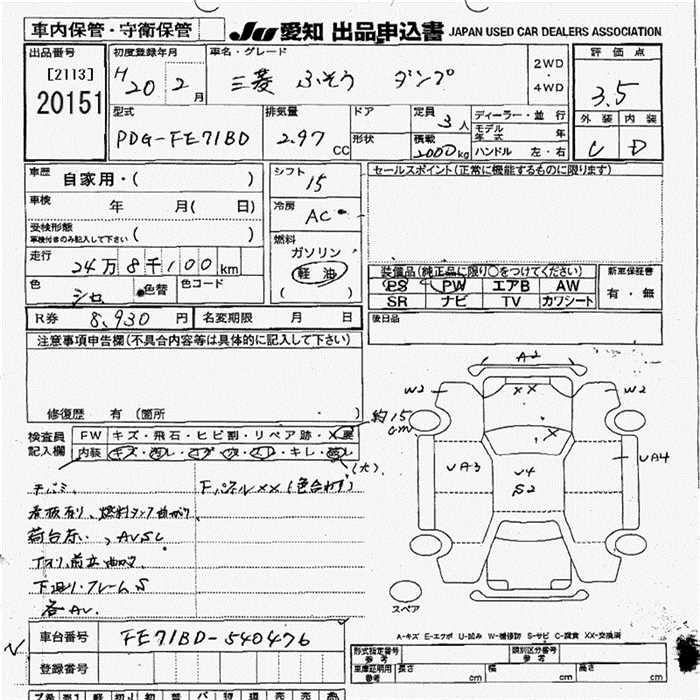 車内保管・守衛保管
JU 愛知 出品申込書 JAPAN USED CAR DEALERS ASSOCIATION
出品番号
[2113]
20151
初度登録年月
H20 2月
車名・グレード
三菱 ふそう ダンプ
2WD
・
4WD
評価点
3.5
外装 内装
C D
型式
PDG-FE71BD
排気量
2.97 CC
ドア
形状
定員
3人
積載
2000kg
ディーラー・並行
モデル年式 年
ハンドル 左・右
車歴
自家用・( )
車検 年 月( 日)
受検形態
車検付きのみ記入して下さい ( )
走行
24万8千100km
色
シロ
色替
色コード
シフト
15
冷房
AC
燃料
ガソリン
軽油
( )
セールスポイント(正常に機能するものに限ります)
装備品(純正品に限り○をつけてください)
PS PW エアB AW
SR ナビ TV カワシート
新車保証書
有・無
後日品
R券 8,930円
名変期限 月 日
注意事項申告欄(不具合内容等は具体的に記入して下さい)
修復歴 有(箇所 )
検査員記入欄
FW キズ・飛石・ヒビ割・リペア跡・X要
内装 キズ・汚レ・コゲ・穴・スレ・キレ・破レ
(大)
約15cm
FパネルXX(色合わず)
看板有り、燃料タンク曲がり
下廻り・フレームS
各AV.
A2
W2
W2
XX
X
UA3
U4
S2
UA4
スペア
A-キズ E-エクボ U-凹み W-補修跡 S-サビ C-腐食 XX-交換済
車台番号 FE71BD-540476
登録番号
形式指定番号
参考
類別区分番号
参考
車庫証明用
参考
長さ cm
幅 cm
高さ cm